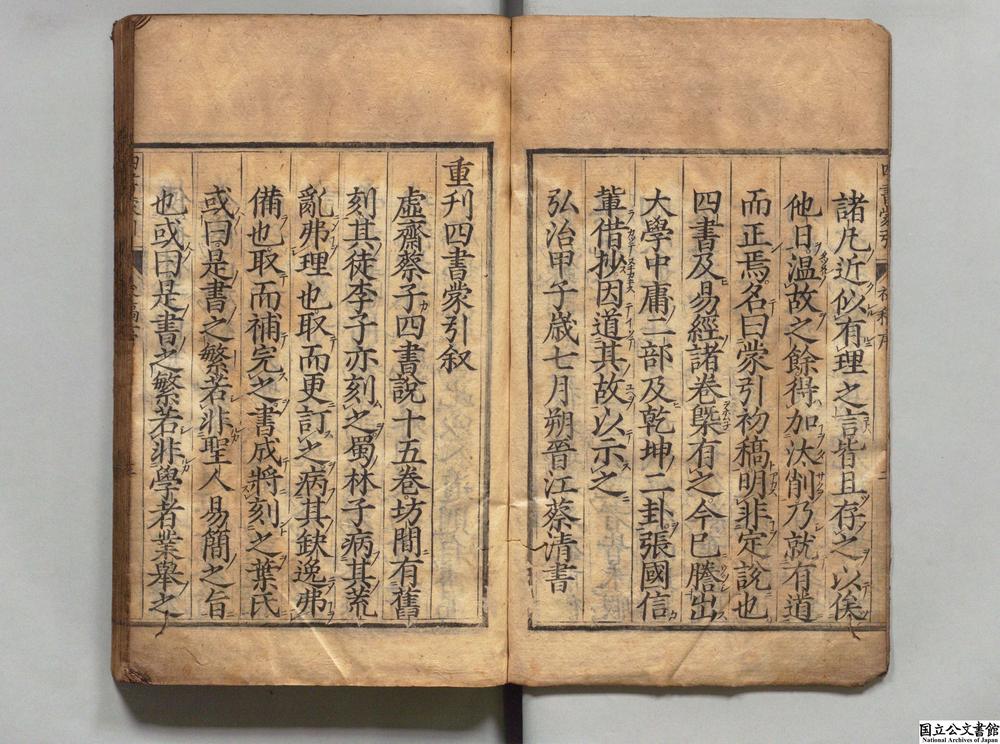 諸凡近似有理之言皆且存之以俟
他日温故之餘得加汰削乃就有道
而正焉名曰蒙引初稿明非定說也
四書及易經諸卷槩有之今已謄出
大學中庸二部及乾坤二卦張國信
軰借抄因道其故以示之
弘治甲子歳七月朔晉江蔡清書
重刊四書蒙引叙
虛齋蔡子四書說十五卷坊間有舊
刻其徒李子亦刻之蜀林子病其荒
亂弗理也取而更訂之病其缺逸弗
備也取而補完之書成將刻之葉氏
或曰是書之繁若非聖人易簡之旨
也或曰是書之繁若非學者業舉之
国立公文書館
National Archives of Japan